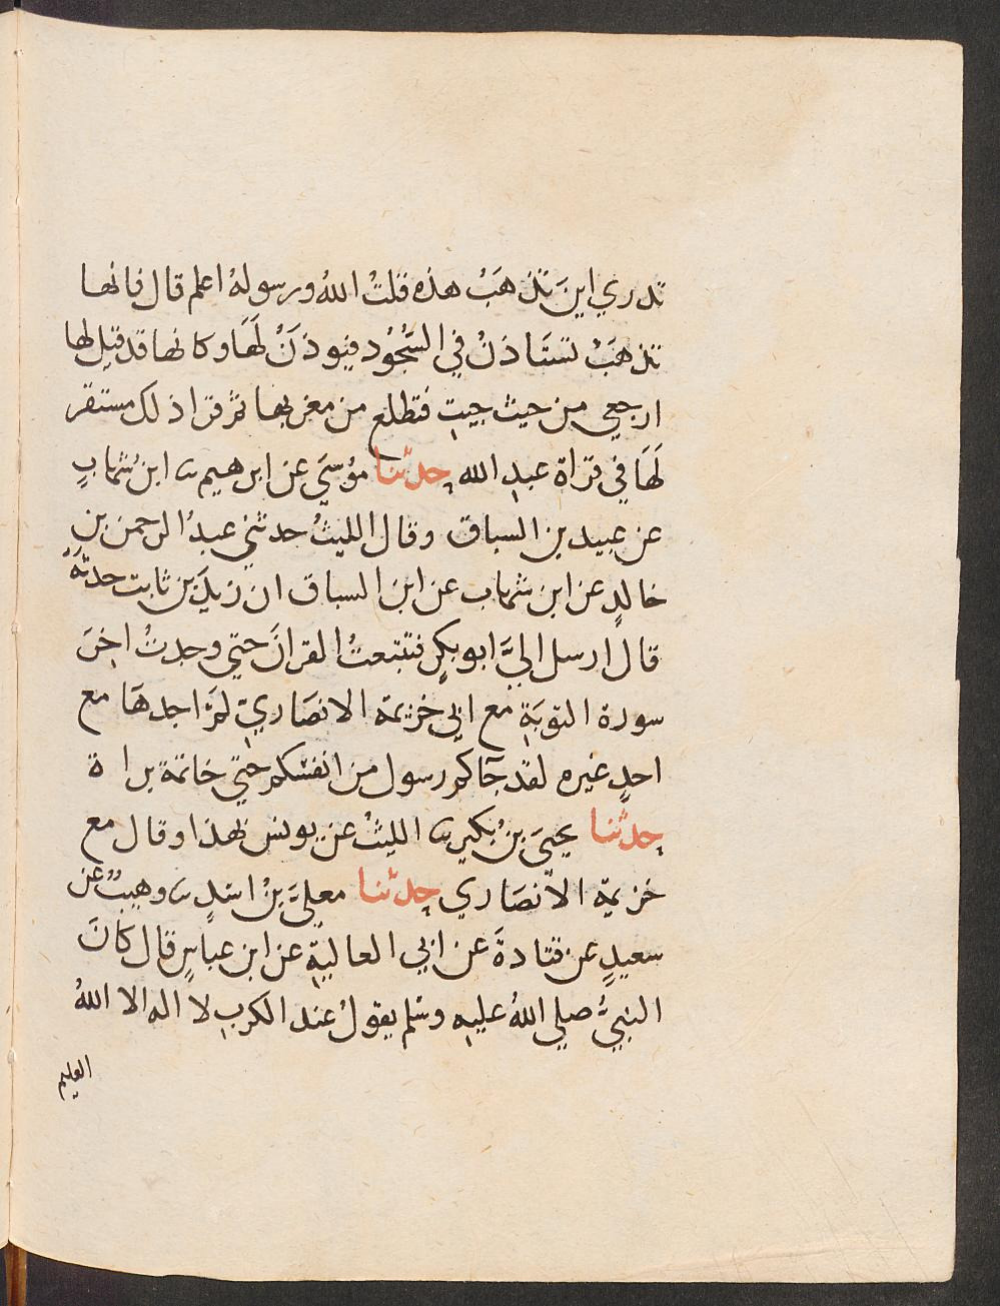 تدري اين تذهَبْ هذه قلتُ اللهُ ورسولهُ اعلم قال فانها
تذهَبْ تستَاذنْ في السُّجُود فيوذَنْ لهَا وكانها قد قيل لها
ارجعي من حيث جيتِ فتطلع من مغربها ثم قرا ذلك مستقر
لهَا في قراة عبدِ الله حدثنا مُوسَي عن ابرهيم ثنا ابن شهابٍ
عن عبيد بن السباق وقال الليثُ حدثني عبدُ الرحمن بن
خالدٍ عن ابن شهاب عن ابن السباق ان زيدَ بن ثابت حدثهُ
قال ارسل اليَّ ابو بكرٍ فتتبعتُ القرانَ حتي وجدتُ اخِرَ
سورة التوبَةِ مع ابي خزيمة الانصَاريِّ لمَ اجدهَا مع
احدٍ غيره لقد جآكم رسول من انفسكم حتي خاتمة براة
حدثنا يحيَي بنُ بُكيرٍ ثنا الليثُ عن يونس بهذا وقال مع
خزيمة الانصَاري حدثنا معليَّ بنُ اسَدٍ ثنا وهيبٌ عن
سعيدٍ عن قتادةَ عن ابي العاليةِ عن ابن عباسٍ قال كانَ
النبيُّ صلي اللهُ عليهِ وسَلم يقولُ عند الكربِ لا اله الا اللهُ
العليم